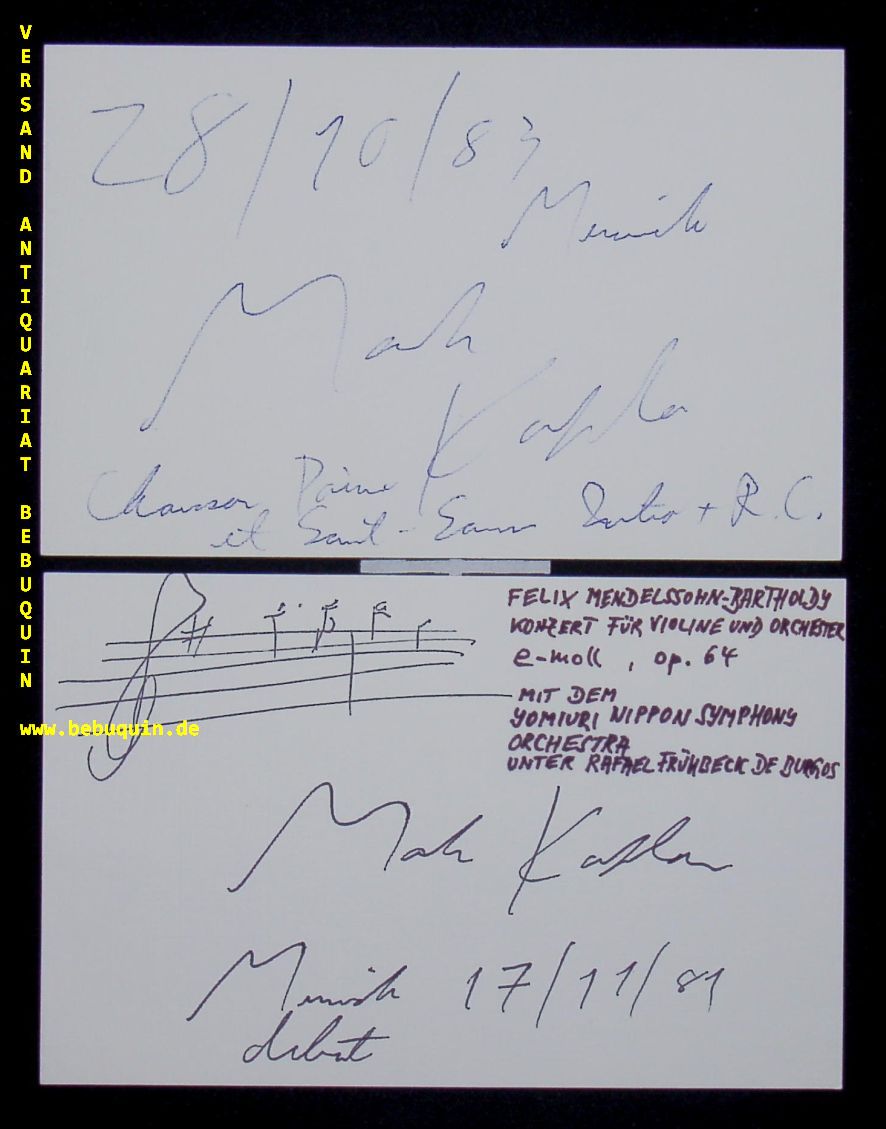 VERSAND ANTIQUARIAT BEBUQUIN
www.bebuquin.de
28/10/83
Munich
Mark
Kaplan
Chausson Poème
et Saint-Saëns Intro + R.C.
FELIX MENDELSSOHN-BARTHOLDY
KONZERT FÜR VIOLINE UND ORCHESTER
e-moll, op. 64
MIT DEM
YOMIURI NIPPON SYMPHONY
ORCHESTRA
UNTER RAFAEL FRÜHBECK DE BURGOS
Mark Kaplan
Munich 17/11/81
debut